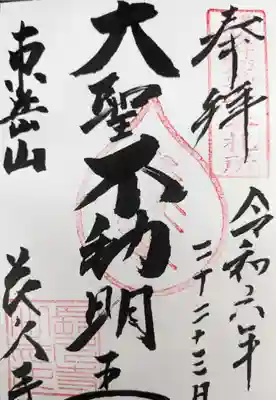 奉拝
令和六年
大聖不動明王
東岳山
長久寺